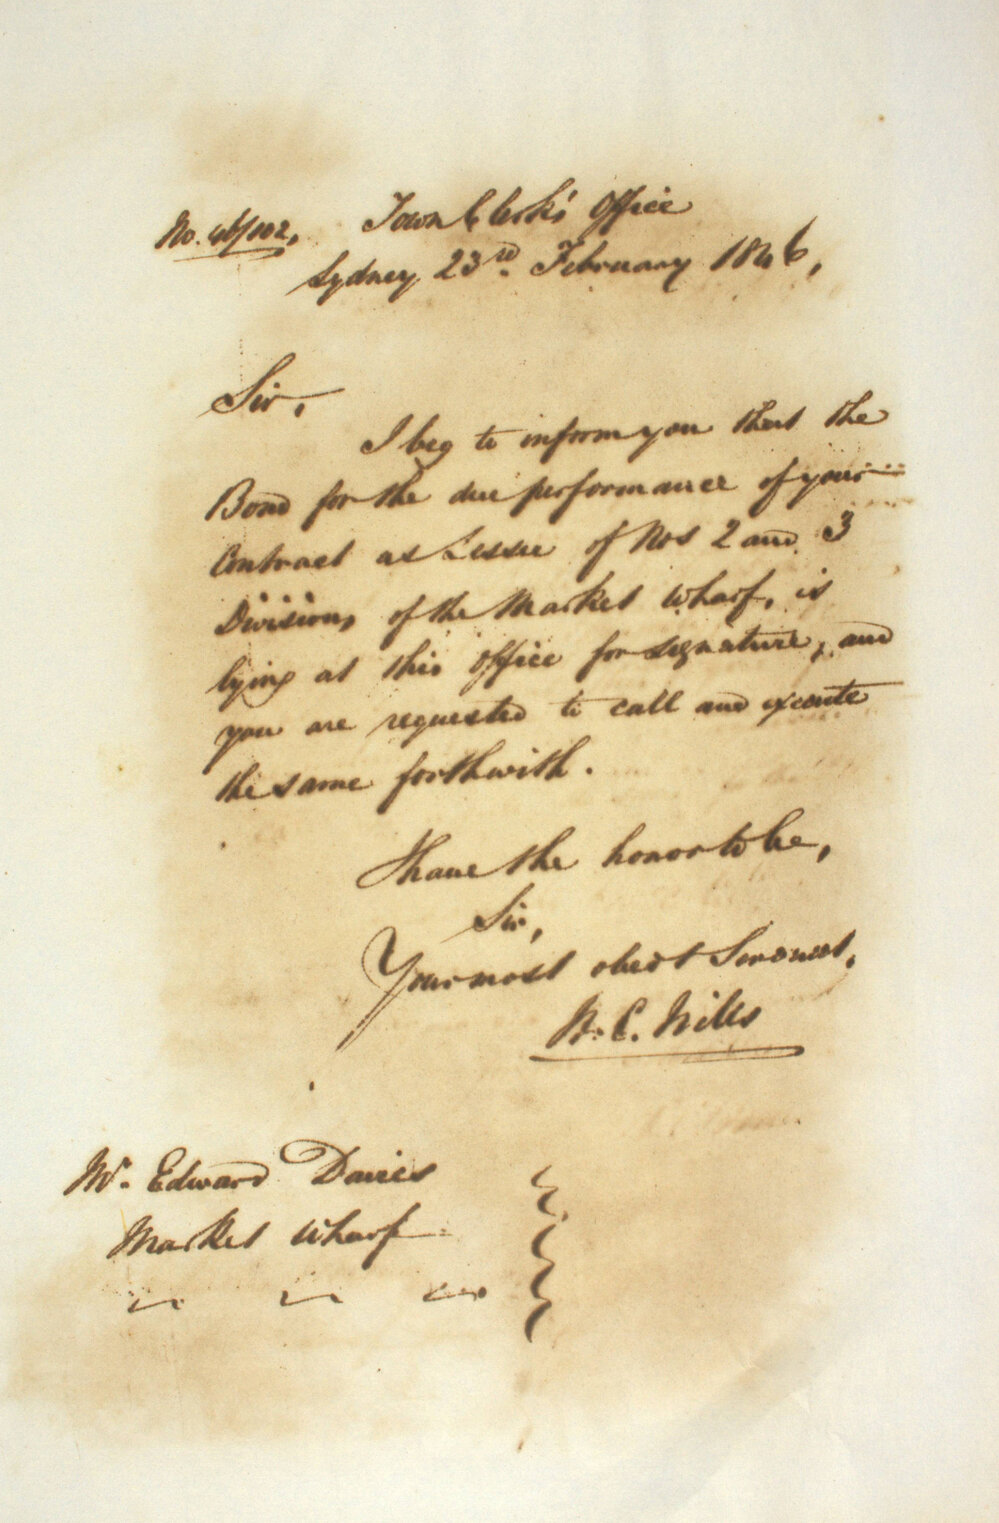 No. 46/102, Town Clerk's Office
Sydney 23rd. February 1846,
Sir,
I beg to inform you that the
Bond for the due performance of your
Contract as Lessee of Nos 2 and 3
Divisions, of the Market Wharf, is
lying at this Office for signature, and
you are requested to call and execute
the same forthwith.
I have the honor to be,
Sir,
Your most obedt Servant,
W. C. Wills
Mr. Edward Davies
Market Wharf